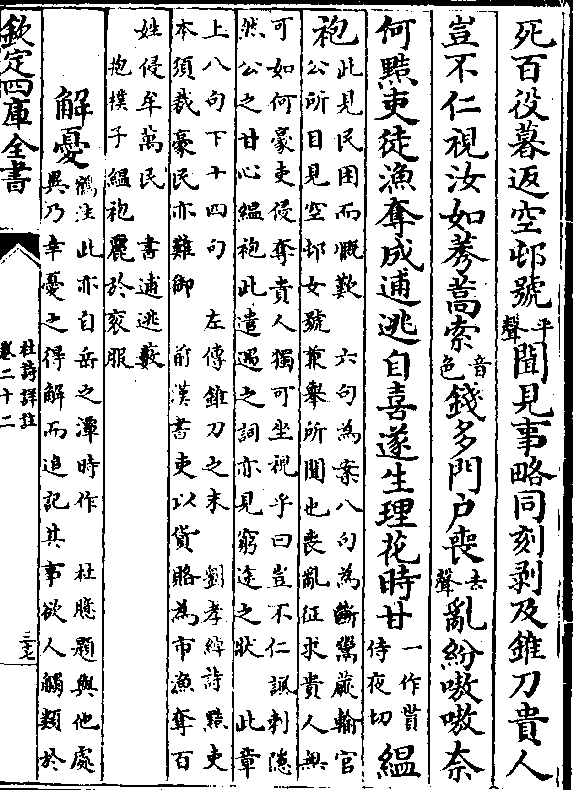 死百役暮返空邨號平聲聞見事略同刻剥及錐刀貴人
豈不仁視汝如莠蒿索音色錢多門户喪去聲亂紛嗷嗷奈
何黠吏徒漁奪成逋逃自喜遂生理花時甘一作貰侍夜切緼
袍
此見民困而慨歎　六句為案八句為斷黨蕨輸官
公所目見空邨女號兼舉所聞也喪亂征求貴人無
可如何豪吏侵奪貴人獨可坐視乎曰豈不仁諷刺隱
然公之甘心緼袍此遣遇之詞亦見窮途之狀　此章
上八句下十四句　左傳錐刀之末　劉孝綽詩黠吏
本須裁豪民亦難御　前漢書吏以貨賂為市漁奪百
姓侵牟萬民　書逋逃藪
抱樸子緼袍麗於衮服
解憂
鶴注此亦自岳之潭時作　杜臆題與他處
異乃幸憂之得解而追記其事欲人觸類於
欽定四庫全書
杜詩詳註
卷二十二
三七